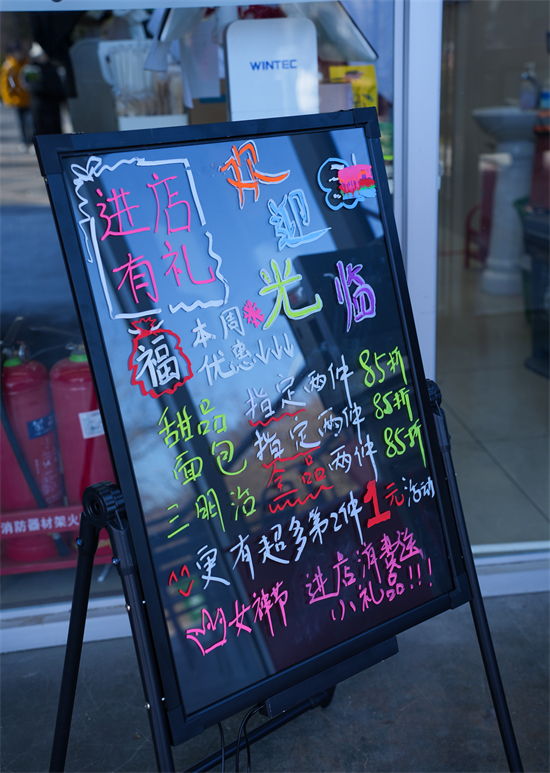 WINTEC
进店
有礼
欢迎光临
福
本周
优惠↓↓↓
甜品 指定两件 85折
面包 指定两件 85折
三明治 全品两件 85折
更有超多第2件1元活动
女神节 进店消费送
小礼品!!!
消防器材架火